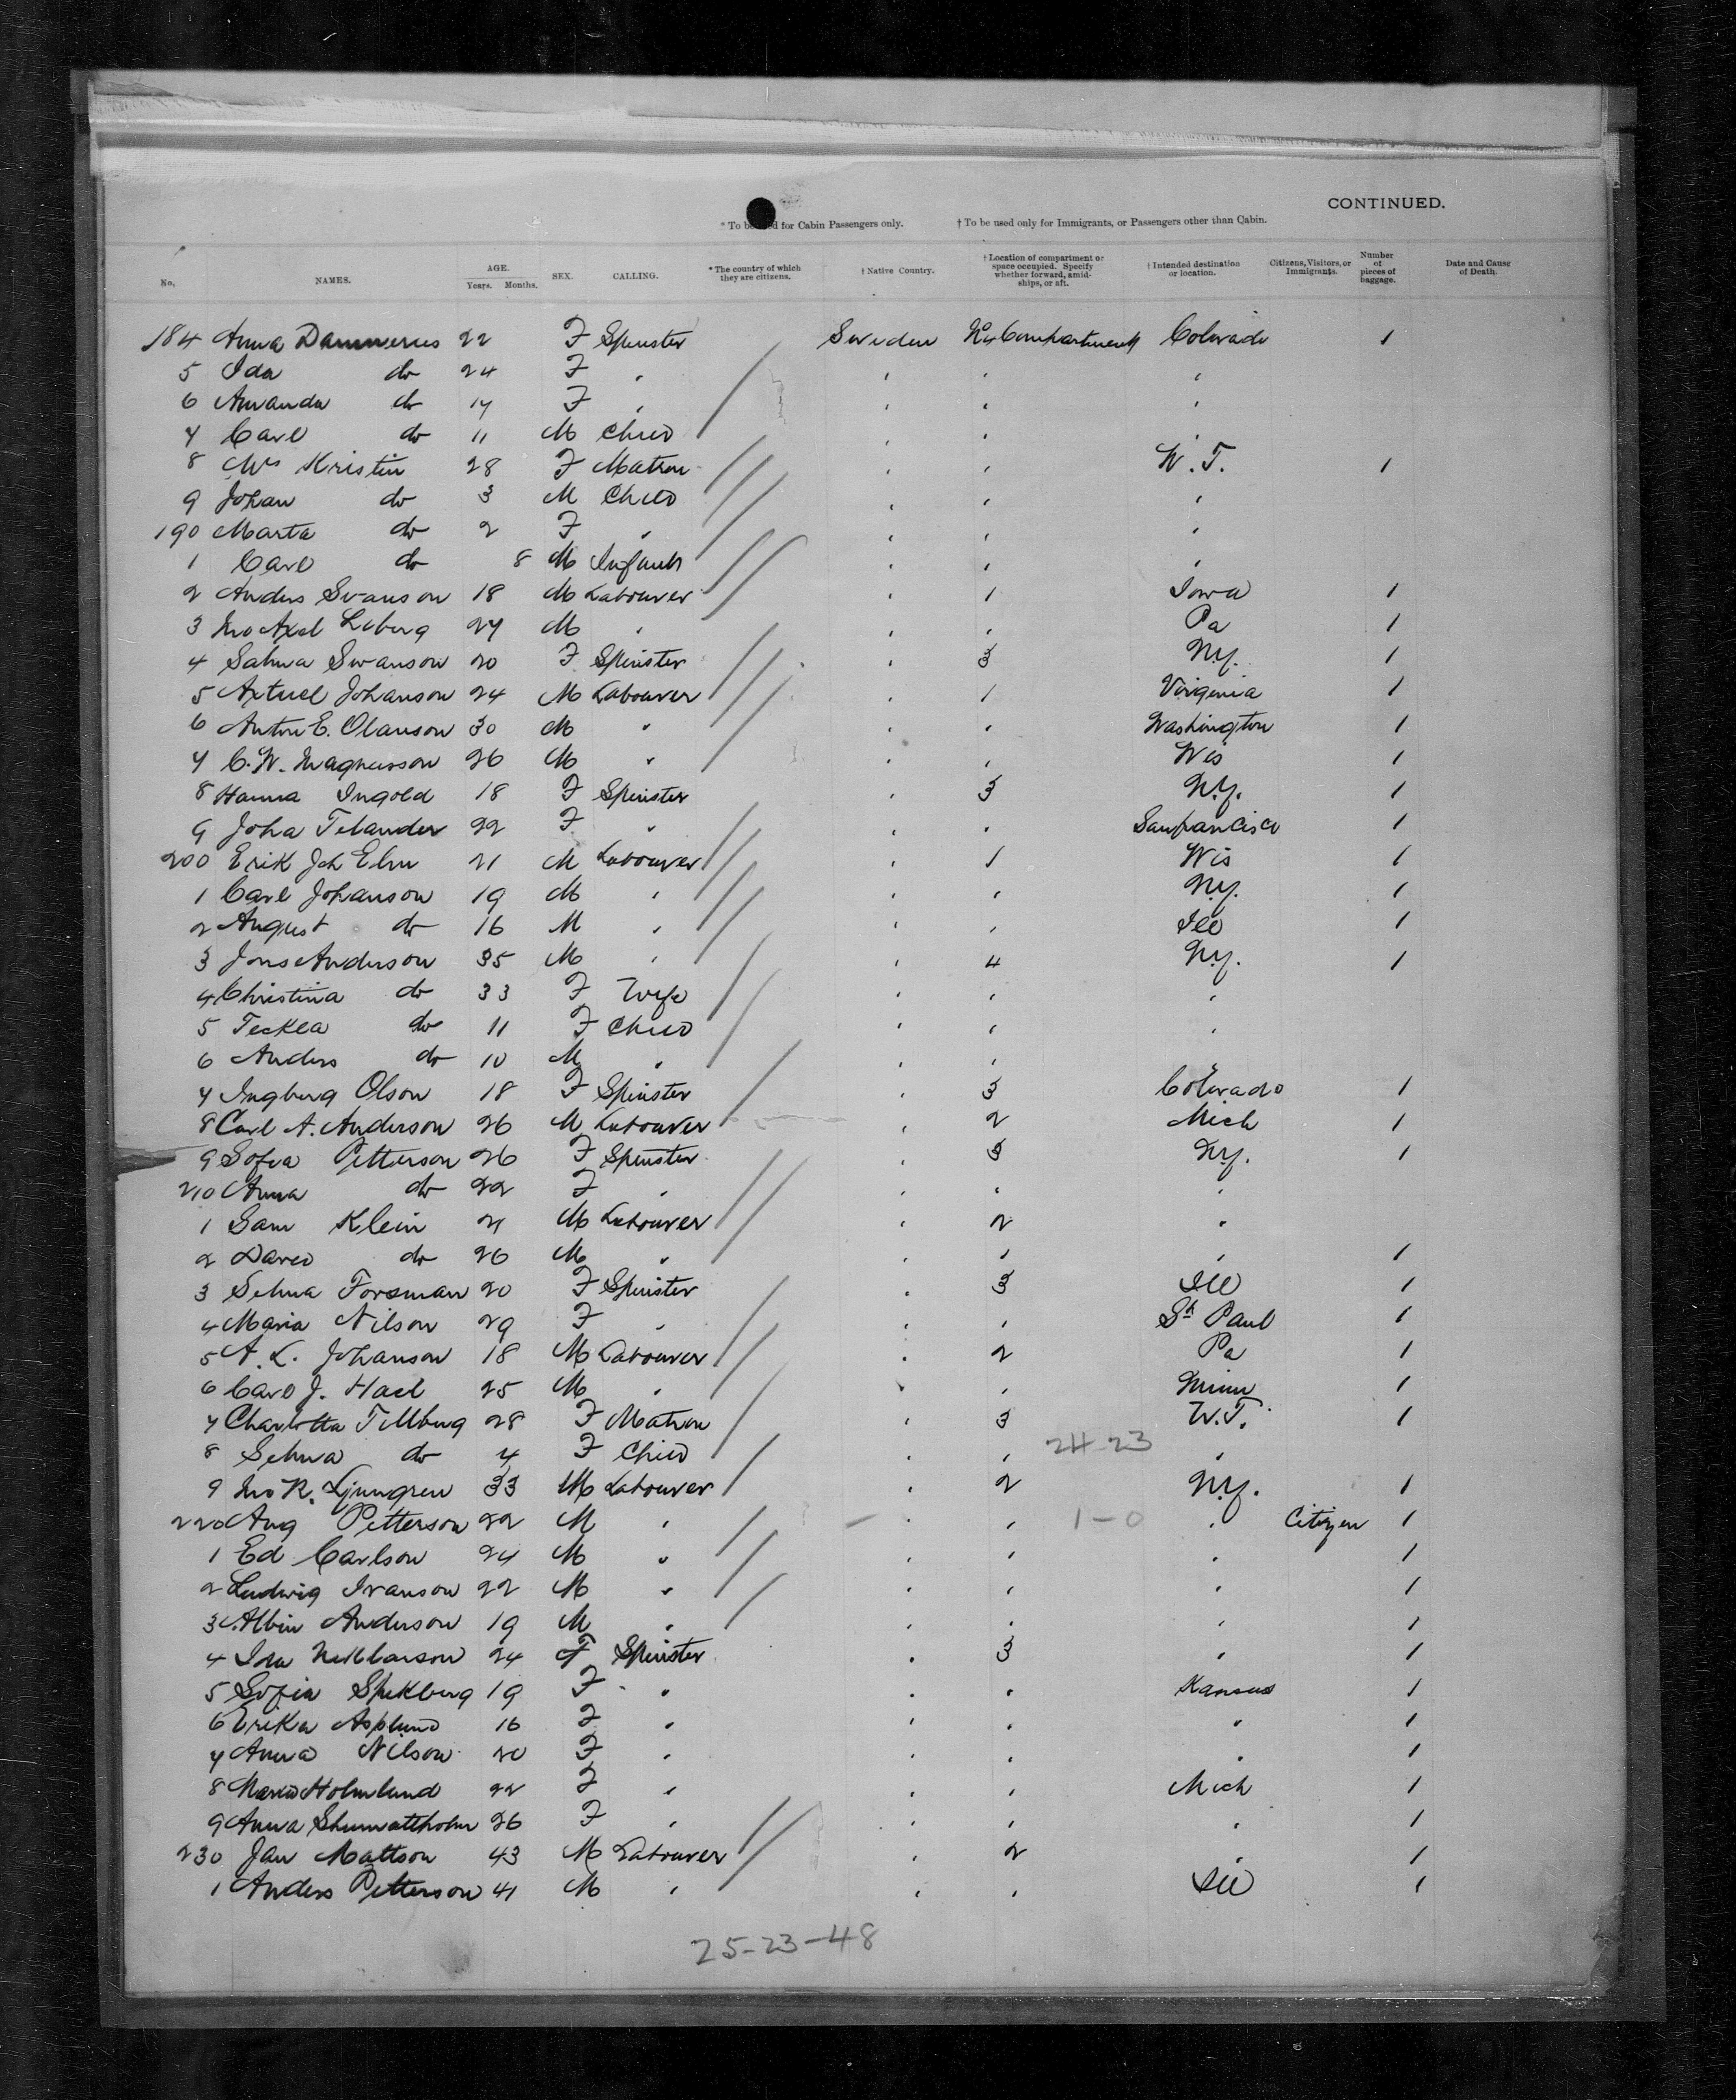 CONTINUED.
* To be used for Cabin Passengers only. † To be used only for Immigrants, or Passengers other than Cabin.
No. NAMES. AGE. Years. Months. SEX. CALLING. * The country of which they are citizens. † Native Country. † Location of compartment or space occupied. Specify whether forward, amidships, or aft. † Intended destination or location. Citizens, Visitors, or Immigrants. Number of pieces of baggage. Date and Cause of Death.
184 Anna 22 F Spinster Sweden No 4 Compartment Colorado 1
5 Ida do 24 F "
6 Amanda do 17 F "
7 Carl do 11 M Child
8 Mrs Kristin 28 F Matron W. T. 1
9 Johan do 3 M Child
190 Marta do 2 F "
1 Carl do 8 M Infant
2 Anders Swanson 18 M Labourer 1 Iowa 1
3 Axel 27 M " Pa 1
4 Swanson 20 F Spinster 3 N.Y. 1
5 Johanson 24 M Labourer 1 Virginia 1
6 Anton E. Olauson 30 M " Washington 1
7 C. W. Magnusson 26 M " Wis 1
8 Hanna Ingold 18 F Spinster 3 N.Y. 1
9 22 F " Sanfrancisco 1
200 Erik Joh Elm 21 M Labourer 1 Wis 1
1 Carl Johanson 19 M " N.Y. 1
2 August do 16 M " Ill 1
3 Jons Anderson 35 M " 4 N.Y. 1
4 Christina do 33 F Wife "
5 Teckla do 11 F Child "
6 Anders do 10 M "
7 Ingborg Olson 18 F Spinster 3 Colorado 1
8 Carl A. Anderson 26 M Labourer 2 Mich 1
9 Sofia Petterson 26 F Spinster 3 N.Y. 1
210 Anna do 22 F " "
1 Sam Klein 21 M Labourer 2 "
2 David do 26 M " " 1
3 Selma Forsman 20 F Spinster 3 Ill 1
4 Maria Nilson 29 F " St Paul 1
5 A. L. Johanson 18 M Labourer 2 Pa 1
6 Carl J. 25 M " Minn 1
7 Charlotta Tillberg 28 F Matron 3 W.T. 1
8 Selma do 4 F Child 24-23 "
9 Ljungren 33 M Labourer 2 N.Y. 1
220 Aug Petterson 22 M " 1-0 " Citizen 1
1 Ed Carlson 24 M " " 1
2 Ludwig Ivanson 22 M " " 1
3 Albin Anderson 19 M " " 1
4 Ida 24 F Spinster 3 " 1
5 Sofia 19 F " Kansas 1
6 Erika Asplund 16 F " " 1
7 Anna Nilson 20 F " " 1
8 Maria Holmlund 22 F " Mich 1
9 Anna 26 F " " 1
230 Jan Mattson 43 M Labourer 2 " 1
1 Anders Petterson 41 M " Ill 1
25-23-48